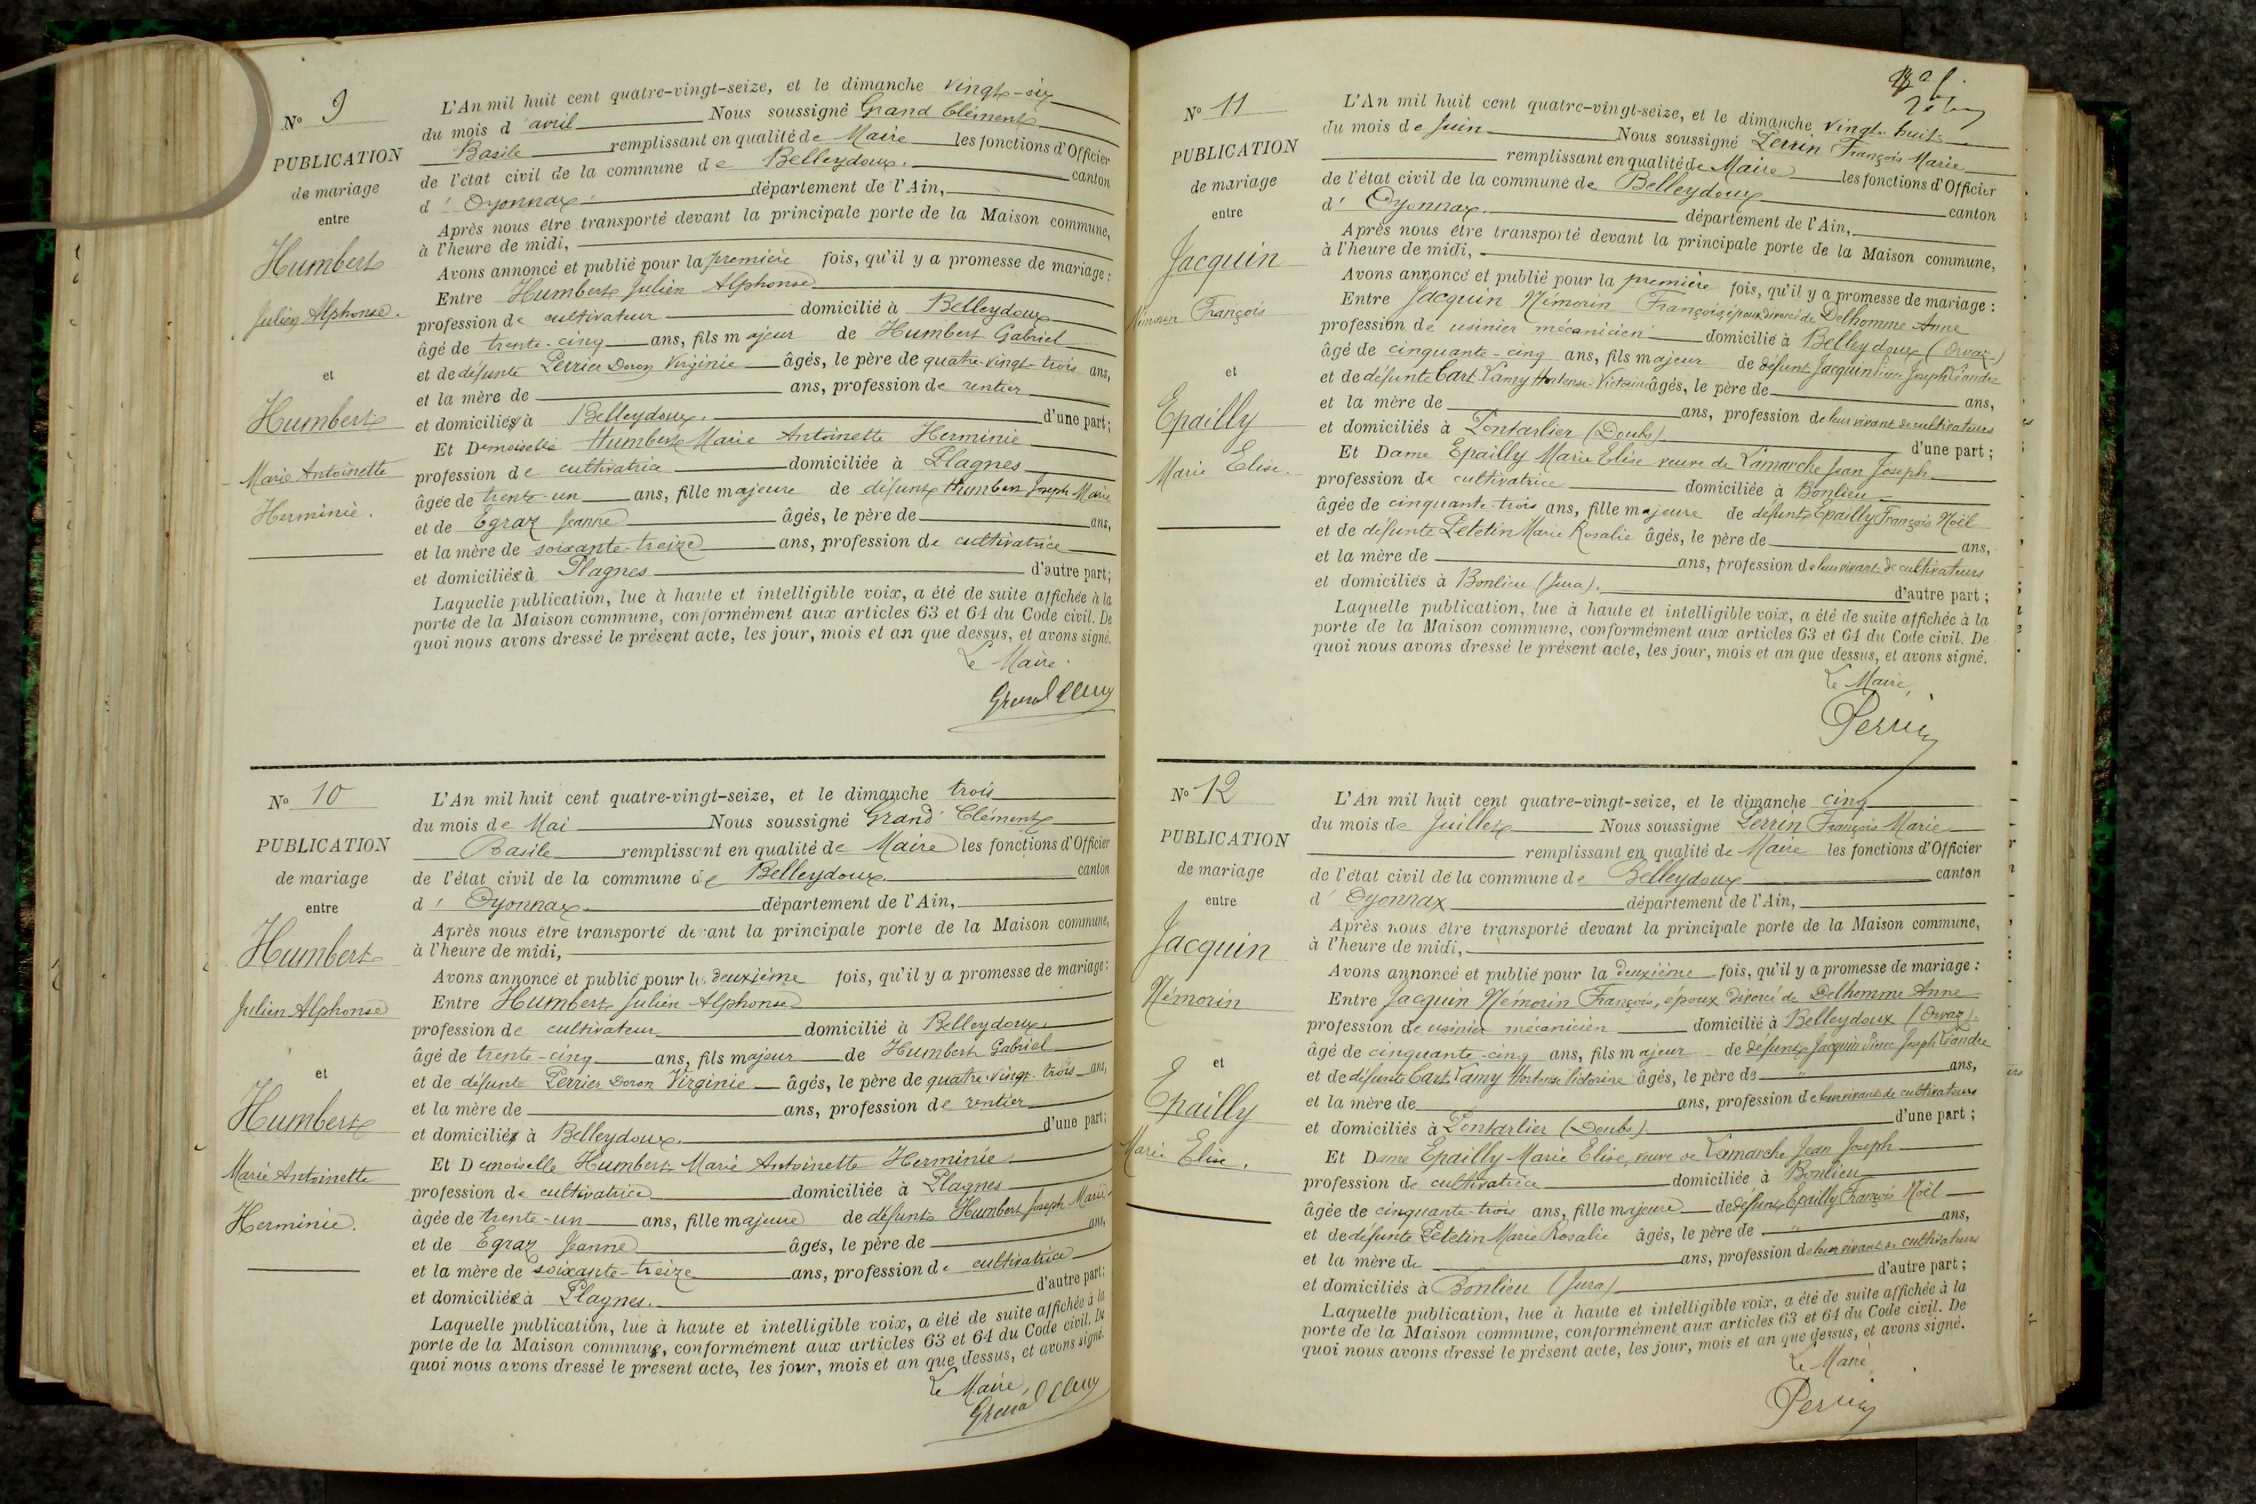 N° 9
PUBLICATION
de mariage
entre
Humbert
Julien Alphonse.
et
Humbert
Marie Antoinette
Herminie.
L'An mil huit cent quatre-vingt-seize, et le dimanche vingt-six
du mois d'avril Nous soussigné Grand Clément
Basile remplissant en qualité de Maire les fonctions d'Officier
de l'état civil de la commune de Belleydoux. canton
d'Oyonnax. département de l'Ain,
Après nous être transporté devant la principale porte de la Maison commune,
à l'heure de midi,
Avons annoncé et publié pour la première fois, qu'il y a promesse de mariage :
Entre Humbert Julien Alphonse
profession de cultivateur domicilié à Belleydoux
âgé de trente-cinq ans, fils majeur de Humbert Gabriel
et de défunte Perrier Doron Virginie âgés, le père de quatre-vingt-trois ans,
et la mère de ans, profession de rentier
et domiciliés à Belleydoux. d'une part ;
Et Demoiselle Humbert Marie Antoinette Herminie
profession de cultivatrice domiciliée à Plagnes
âgée de trente-un ans, fille majeure de défunt Humbert Joseph Marie
et de Egraz Jeanne âgés, le père de ans,
et la mère de soixante-treize ans, profession de cultivatrice
et domiciliés à Plagnes d'autre part ;
Laquelle publication, lue à haute et intelligible voix, a été de suite affichée à la
porte de la Maison commune, conformément aux articles 63 et 64 du Code civil. De
quoi nous avons dressé le présent acte, les jour, mois et an que dessus, et avons signé.
Le Maire.
N° 10
PUBLICATION
de mariage
entre
Humbert
Julien Alphonse
et
Humbert
Marie Antoinette
Herminie.
L'An mil huit cent quatre-vingt-seize, et le dimanche trois
du mois de Mai Nous soussigné Grand Clément
Basile remplissant en qualité de Maire les fonctions d'Officier
de l'état civil de la commune de Belleydoux. canton
d'Oyonnax. département de l'Ain,
Après nous être transporté devant la principale porte de la Maison commune,
à l'heure de midi,
Avons annoncé et publié pour la deuxième fois, qu'il y a promesse de mariage :
Entre Humbert Julien Alphonse
profession de cultivateur domicilié à Belleydoux
âgé de trente-cinq ans, fils majeur de Humbert Gabriel
et de défunte Perrier Doron Virginie âgés, le père de quatre-vingt-trois ans,
et la mère de ans, profession de rentier
et domiciliés à Belleydoux. d'une part ;
Et Demoiselle Humbert Marie Antoinette Herminie
profession de cultivatrice domiciliée à Plagnes
âgée de trente-un ans, fille majeure de défunt Humbert Joseph Marie
et de Egraz Jeanne âgés, le père de ans,
et la mère de soixante-treize ans, profession de cultivatrice
et domiciliés à Plagnes. d'autre part ;
Laquelle publication, lue à haute et intelligible voix, a été de suite affichée à la
porte de la Maison commune, conformément aux articles 63 et 64 du Code civil. De
quoi nous avons dressé le présent acte, les jour, mois et an que dessus, et avons signé.
Le Maire,
N° 11
PUBLICATION
de mariage
entre
Jacquin
Némorin François
et
Epailly
Marie Elise.
L'An mil huit cent quatre-vingt-seize, et le dimanche vingt-huit
du mois de Juin Nous soussigné Perrin François Marie
remplissant en qualité de Maire les fonctions d'Officier
de l'état civil de la commune de Belleydoux canton
d'Oyonnax. département de l'Ain,
Après nous être transporté devant la principale porte de la Maison commune,
à l'heure de midi,
Avons annoncé et publié pour la première fois, qu'il y a promesse de mariage :
Entre Jacquin Némorin François, époux divorcé de Delhomme Anne
profession de usinier mécanicien domicilié à Belleydoux (Orvaz)
âgé de cinquante-cinq ans, fils majeur de défunt Jacquin Pierre Joseph Léandre
et de défunte Cart Lamy Hortense Victorine âgés, le père de ans,
et la mère de ans, profession de leur vivant de cultivateurs
et domiciliés à Pontarlier (Doubs) d'une part ;
Et Dame Epailly Marie Elise veuve de Lamarche Jean Joseph
profession de cultivatrice domiciliée à Bonlieu
âgée de cinquante-trois ans, fille majeure de défunt Epailly François Noël
et de défunte Petetin Marie Rosalie âgés, le père de ans,
et la mère de ans, profession de leur vivant de cultivateurs
et domiciliés à Bonlieu (Jura). d'autre part ;
Laquelle publication, lue à haute et intelligible voix, a été de suite affichée à la
porte de la Maison commune, conformément aux articles 63 et 64 du Code civil. De
quoi nous avons dressé le présent acte, les jour, mois et an que dessus, et avons signé.
Le Maire,
Perrin
N° 12
PUBLICATION
de mariage
entre
Jacquin
Némorin
et
Epailly
Marie Elise.
L'An mil huit cent quatre-vingt-seize, et le dimanche cinq
du mois de Juillet Nous soussigné Perrin François Marie
remplissant en qualité de Maire les fonctions d'Officier
de l'état civil de la commune de Belleydoux canton
d'Oyonnax département de l'Ain,
Après nous être transporté devant la principale porte de la Maison commune,
à l'heure de midi,
Avons annoncé et publié pour la deuxième fois, qu'il y a promesse de mariage :
Entre Jacquin Némorin François, époux divorcé de Delhomme Anne
profession de usinier mécanicien domicilié à Belleydoux (Orvaz).
âgé de cinquante-cinq ans, fils majeur de défunt Jacquin Pierre Joseph Léandre
et de défunte Cart Lamy Hortense Victorine âgés, le père de " ans,
et la mère de ans, profession de leur vivant de cultivateurs
et domiciliés à Pontarlier (Doubs) d'une part ;
Et Dame Epailly Marie Elise, veuve de Lamarche Jean Joseph
profession de cultivatrice domiciliée à Bonlieu
âgée de cinquante-trois ans, fille majeure de défunt Epailly François Noël
et de défunte Petetin Marie Rosalie âgés, le père de " ans,
et la mère de ans, profession de leur vivant de cultivateurs
et domiciliés à Bonlieu (Jura) d'autre part ;
Laquelle publication, lue à haute et intelligible voix, a été de suite affichée à la
porte de la Maison commune, conformément aux articles 63 et 64 du Code civil. De
quoi nous avons dressé le présent acte, les jour, mois et an que dessus, et avons signé.
Le Maire
Perrin